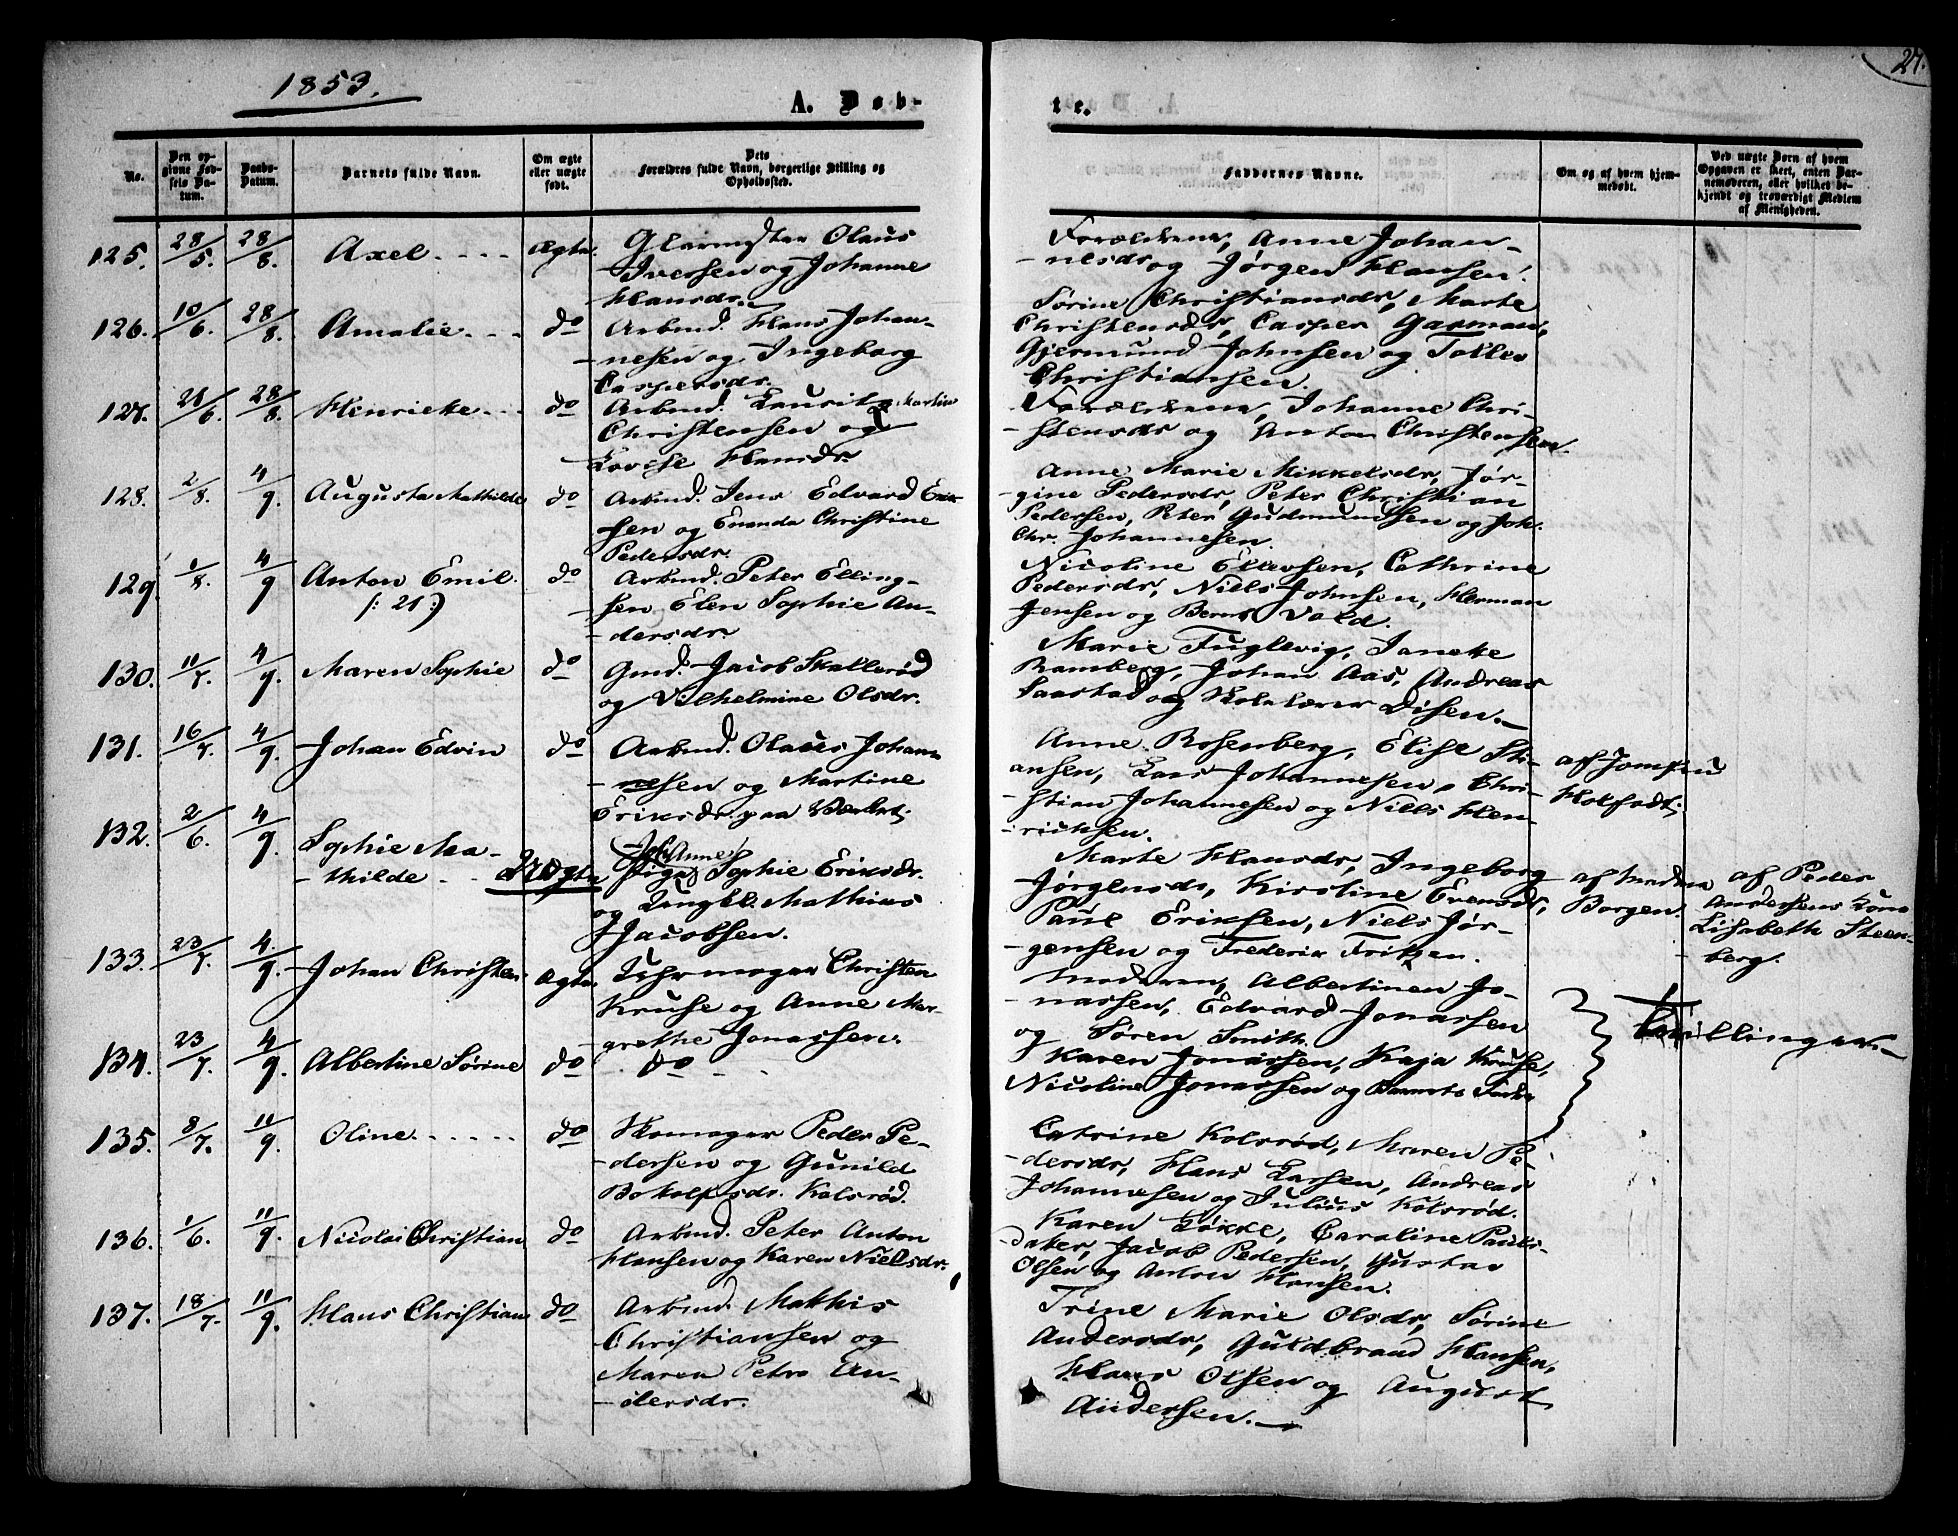 1853.
A. Døb-
te.
No.
Den op-
givne Fød-
sels Da-
tum.
Daabs-
Datum.
Barnets fulde Navn.
Om ægte
eller uægte
født.
Dets
Forældres fulde Navn, borgerlige Stilling og
Opholdssted.
Faddernes Navne.
Om og af hvem hjem-
medøbt.
Ved uægte Børn af hvem
Opgaven er skeet, enten Bar-
nemoderen, eller hvilket be-
kjendt og troværdigt Medlem
af Menigheden.
125. 28/5. 28/8. Axel. Ægte. Glarmster Olaus
Iversen og Johanne
Hansdr.
Forældrene, Anne Johan-
nesdr og Jørgen Hansen.
126. 10/6. 28/8. Amalie do Arbmd. Hans Johan-
nesen og Ingeborg
Caspersdr.
Sørine Christiansdr, Marte
Christensdr, Casper Garman,
Gjermund Johnsen og Tolles
Christiansen.
127. 21/6. 28/8. Henrieke do Arbmd. Lauritz Martin
Christensen og
Lovise Hansdr.
Forældrene, Johanne Chri-
stensdr og Anton Christensen.
128. 2/8. 4/9. Augusta Mathilde do Arbmd. Jens Edvard Erik-
sen og Enanda Christine
Pedersdr.
Anne Marie Mikkelsdr, Jør-
gine Pedersdr, Peter Christian
Pedersen, Peter Gudmundsen og Joh.
Chr. Johannesen.
129. 1/8. 4/9. Anton Emil. do Arbmd. Peter Elling-
(: 21 :)
sen Elen Sophie An-
dersdr.
Nicoline Ellevsen, Cathrine
Pedersdr, Niels Johnsen, Herman
Jensen og Bernt Vold.
130. 11/7. 4/9. Maren Sophie do Gmd. Jacob Skallerød
og Vilhelmine Olsdr.
Marie Fuglevig, Janeke
Ramberg, Johan Aas, Andreas
Saastad og Skolelærer Disen.
131. 16/7. 4/9. Johan Edvin do Arbmd. Olaus Johan-
nesen og Martine
Eriksdr. paa
Anne Rosenberg, Elise Sti-
ansen, Lars Johannesen, Chri-
stian Johannesen og Niels Hen-
riksen.
af Jomfru
Holfodt.
132. 2/6. 4/9. Sophie Ma-
thilde Uægte Pige Anne Sophie Eriksdr.
og Ungkl. Mathias
Jacobsen.
Marte Hansdr, Ingeborg
Jørgensdr, Karoline Evensdr,
Paul Eriksen, Niels Jør-
gensen og Frederik Fritzen.
af Madam
Borgen.
af Peder
Andersens Kone
Lisabeth Steen-
berg.
133. 23/7. 4/9. Johan Christen Ægte Uhrmager Christen
Kruse og Anne Mar-
grethe Jonassen.
Moderen, Albertinen Jo-
nassen, Edvard Jonassen
og Søren Smith.
Tvillinger.
134. 23/7. 4/9. Albertine Sørine do do
Karen Jonassen, Kaja Kruse,
Nicoline Jonassen og Barnets Fader
135. 8/7. 11/9. Oline. do Skomager Peder Pe-
dersen og Gunild
Botolfsdr. Kolsrød.
Catrine Kolsrød, Maren Pe-
dersdr, Hans Larsen, Andreas
Johannesen og Julius Kolsrød.
136. 1/6. 11/9. Nicolai Christian do Arbmd. Peter Anton
Hansen og Karen Nielsdr.
Karen Løkke, Caroline Pauls-
datter, Jacob Pedersen, Gustav
Olsen og Anton Hansen.
137. 18/7. 11/9. Hans Christian do Arbmd. Mathis
Christiansen og
Maren Petra An-
dersdr.
Trine Marie Olsdr, Sørine
Andersdr, Guldbrand Hansen,
Hans Olsen og August
Andersen.